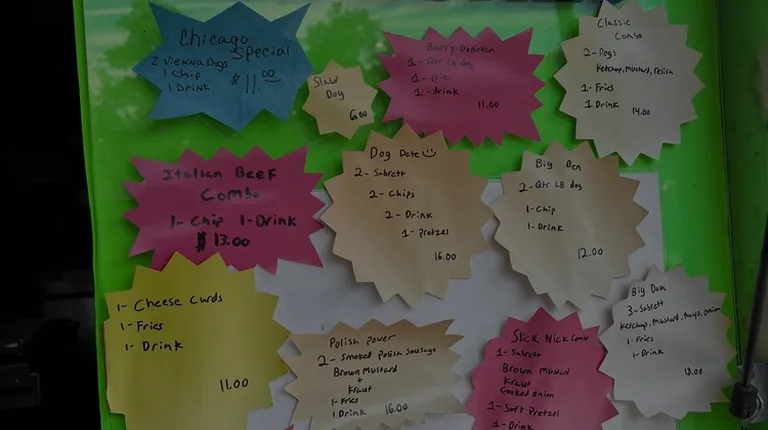 Chicago
Special
2 Vienna Dogs
1 Chip
1 Drink
$11.00
Slaw
Dog
6.00
Barry Donovan
1- Qtr Lb dog
1- Fries
1- drink
11.00
Classic
Combo
2- Dogs
Ketchup, Mustard, Relish
1- Fries
1 Drink
14.00
Italian Beef
Combo
1- Chip 1- Drink
$13.00
Dog Date
2- Sabrett
2- Chips
2- Drink
1- Pretzel
16.00
Big Ben
2- Qtr LB dog
1- Chip
1- Drink
12.00
1- Cheese Curds
1- Fries
1- Drink
11.00
Polish Power
2- Smoked Polish Sausage
Brown Mustard
+
Kraut
1- Fries
1 Drink 16.00
Slick Nick Combo
1- Sabrett
Brown Mustard
Kraut
Cooked onion
1- Soft Pretzel
1- Drink
Big Dan
3- Sabrett
Ketchup, Mustard, Mayo, onion
1- Fries
1- Drink
18.00